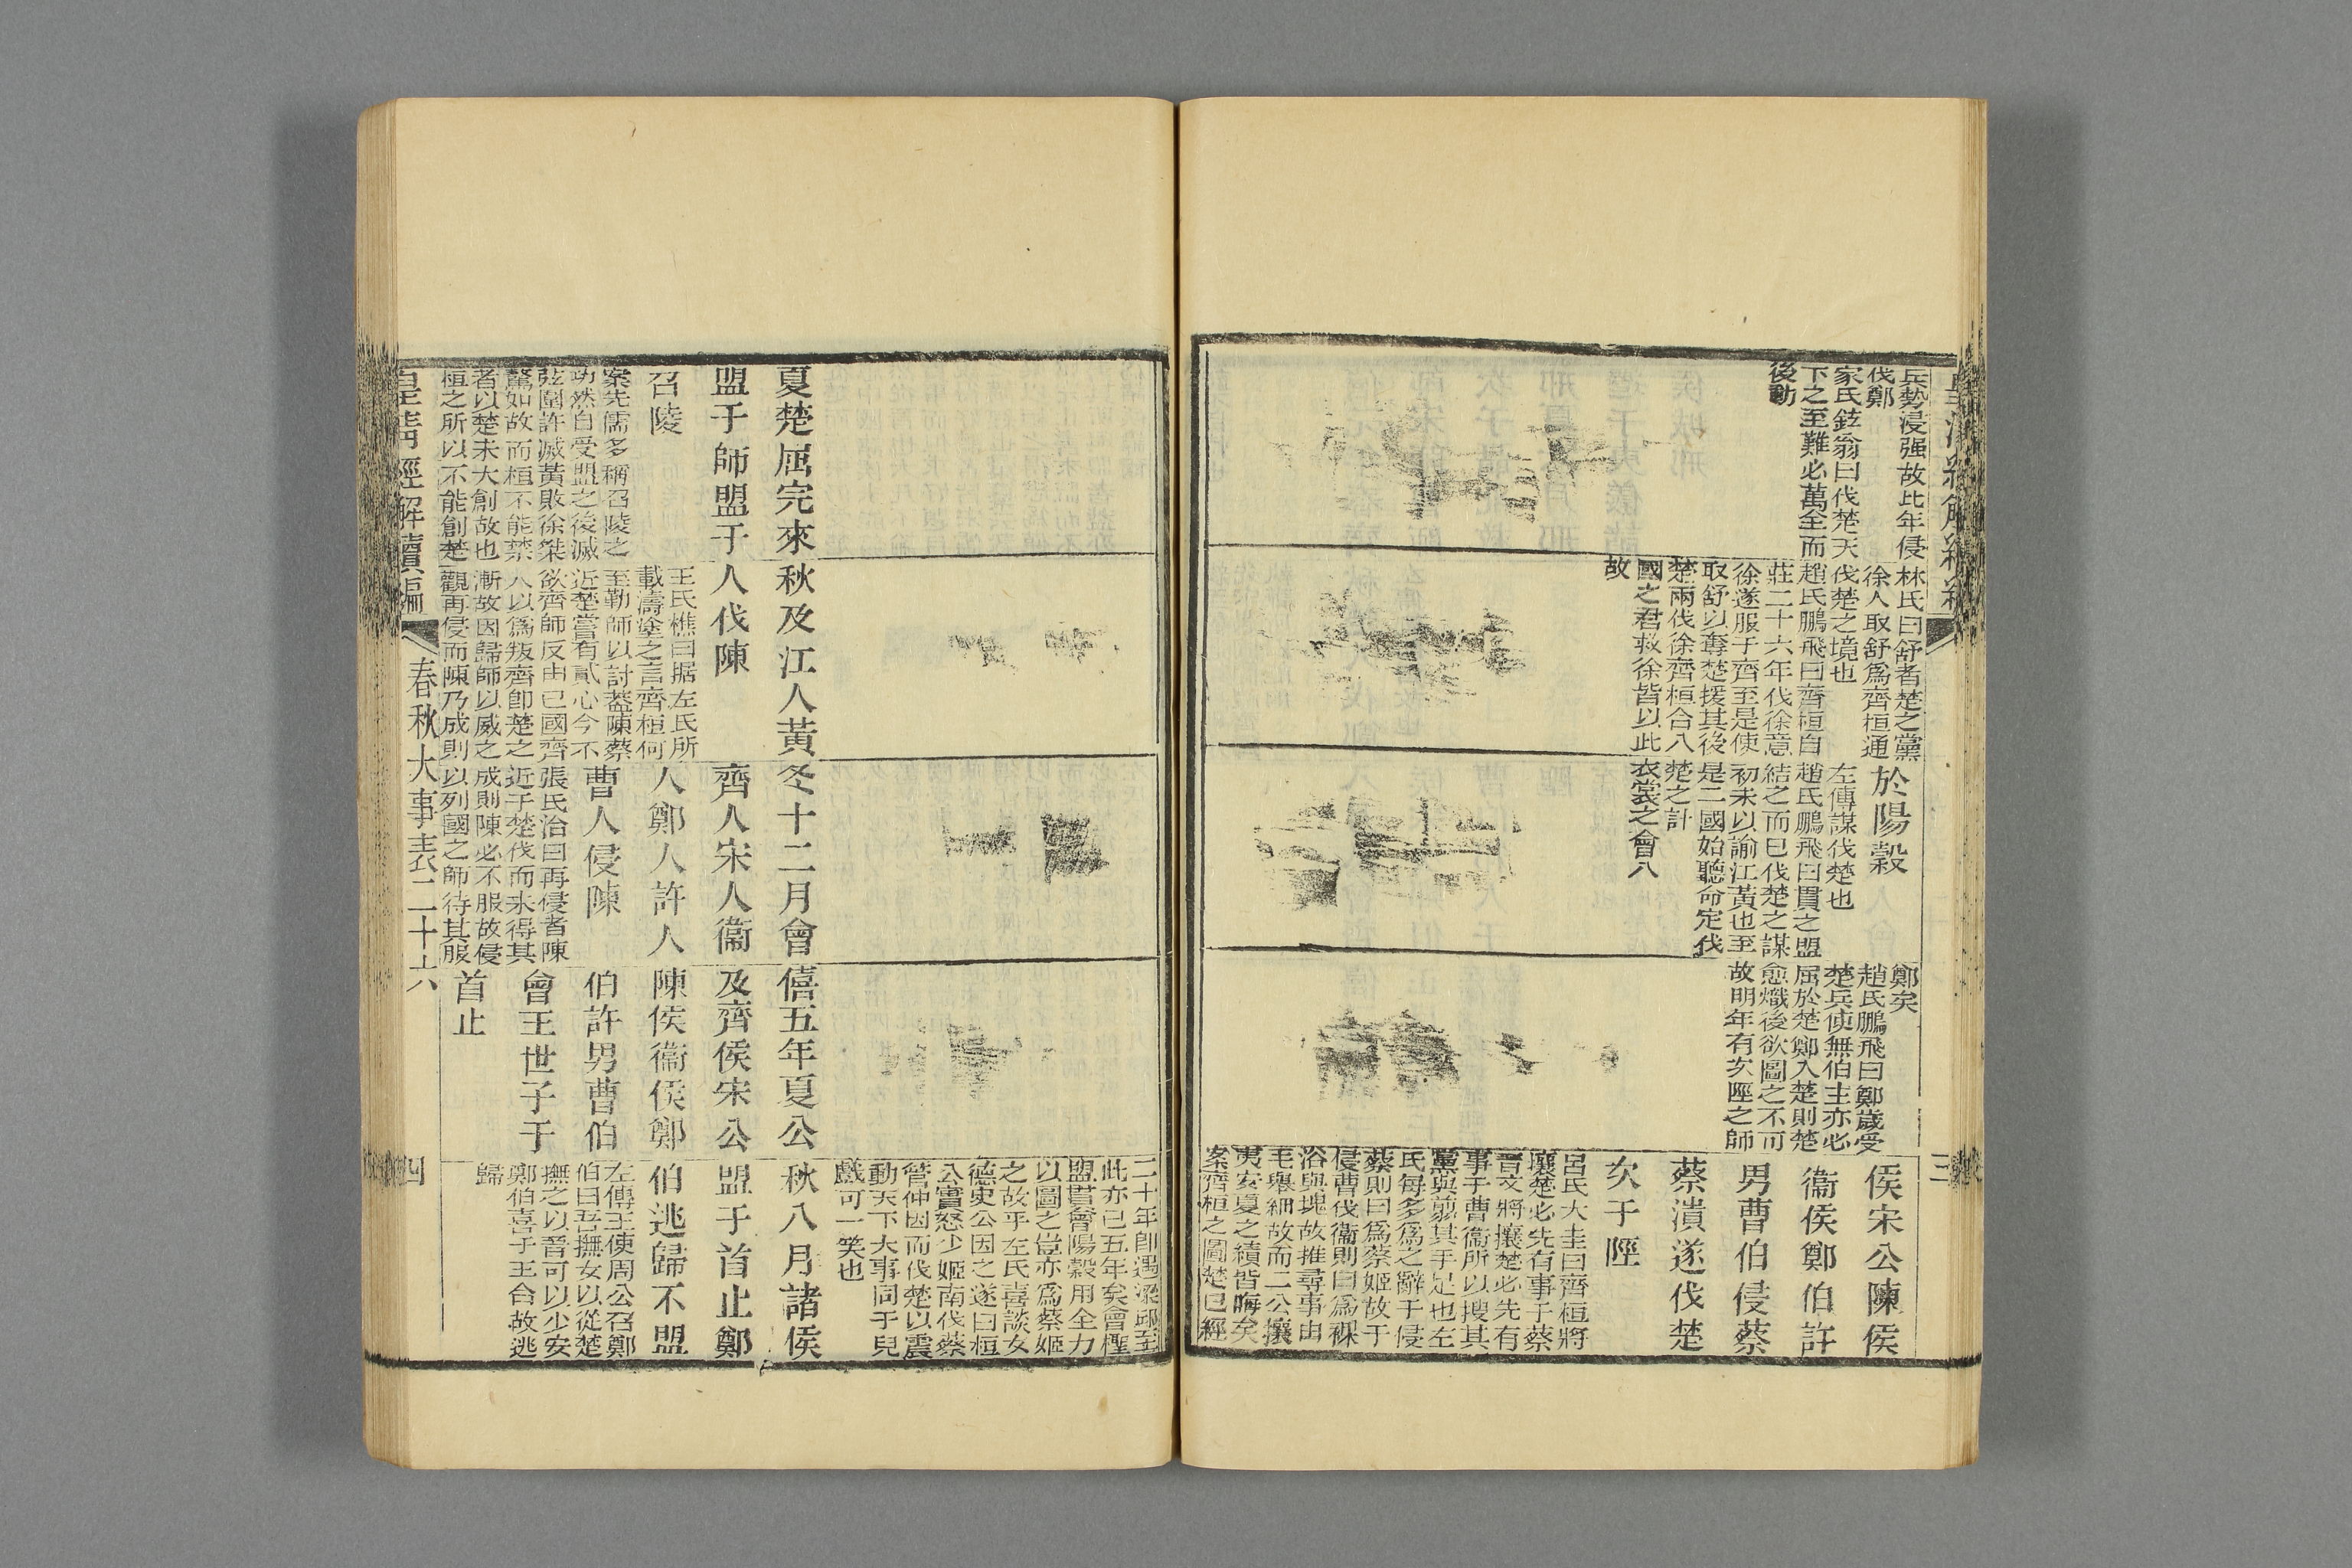 兵勢浸强故比年侵
伐鄭
家氏鉉翁曰伐楚天
下之至難必萬全而
後動
林氏曰舒者楚之黨
徐人取舒爲齊桓通
伐楚之境也
趙氏鵬飛曰齊桓自
莊二十六年伐徐意
徐遂服于齊至是使
取舒以奪楚援其後
楚兩伐徐齊桓合八
國之君救徐皆以此
故
於陽穀
左傳謀伐楚也
趙氏鵬飛曰貫之盟
結之而已伐楚之謀
初未以諭江黃也至
是二國始聽命定伐
楚之計
衣裳之會八
鄭矣
趙氏鵬飛曰鄭歲受
楚兵使無伯主亦必
屈於楚鄭入楚則楚
愈熾後欲圖之不可
故明年有次陘之師
侯宋公陳侯
衞侯鄭伯許
男曹伯侵蔡
蔡潰遂伐楚
次于陘
呂氏大圭曰齊桓將
攘楚必先有事于蔡
晉文將攘楚必先有
事于曹衞所以搜其
黨與翦其手足也左
氏每多爲之辭于侵
蔡則曰爲蔡姬故于
侵曹伐衞則曰爲裸
浴與塊故推尋事由
毛舉細故而二公攘
夷安夏之績皆晦矣
案齊桓之圖楚已經
三
二十年卽遇梁邱至
此亦已五年矣會檉
盟貫會陽穀用全力
以圖之豈亦爲蔡姬
之故乎左氏喜談女
德史公因之遂曰桓
公實怒少姬南伐蔡
管仲因而伐楚以震
動天下大事同于兒
戲可一笑也
夏楚屈完來
盟于師盟于
召陵
案先儒多稱召陵之
功然自受盟之後滅
弦圍許滅黃敗徐桀
驁如故而桓不能禁
者以楚未大創故也
桓之所以不能創楚
秋及江人黃
人伐陳
王氏樵曰据左氏所
載濤塗之言齊桓何
至勤師以討蓋陳蔡
近楚嘗有貳心今不
欲齊師反由己國齊
人以爲叛齊卽楚之
漸故因歸師以威之
觀再侵而陳乃成則
冬十二月會
齊人宋人衞
人鄭人許人
曹人侵陳
張氏洽曰再侵者陳
近于楚伐而未得其
成則陳必不服故侵
以列國之師待其服
僖五年夏公
及齊侯宋公
陳侯衞侯鄭
伯許男曹伯
會王世子于
首止
秋八月諸侯
盟于首止鄭
伯逃歸不盟
左傳王使周公召鄭
伯曰吾撫女以從楚
撫之以晉可以少安
鄭伯喜于王命故逃
歸
皇清經解續編
春秋大事表二十六
四